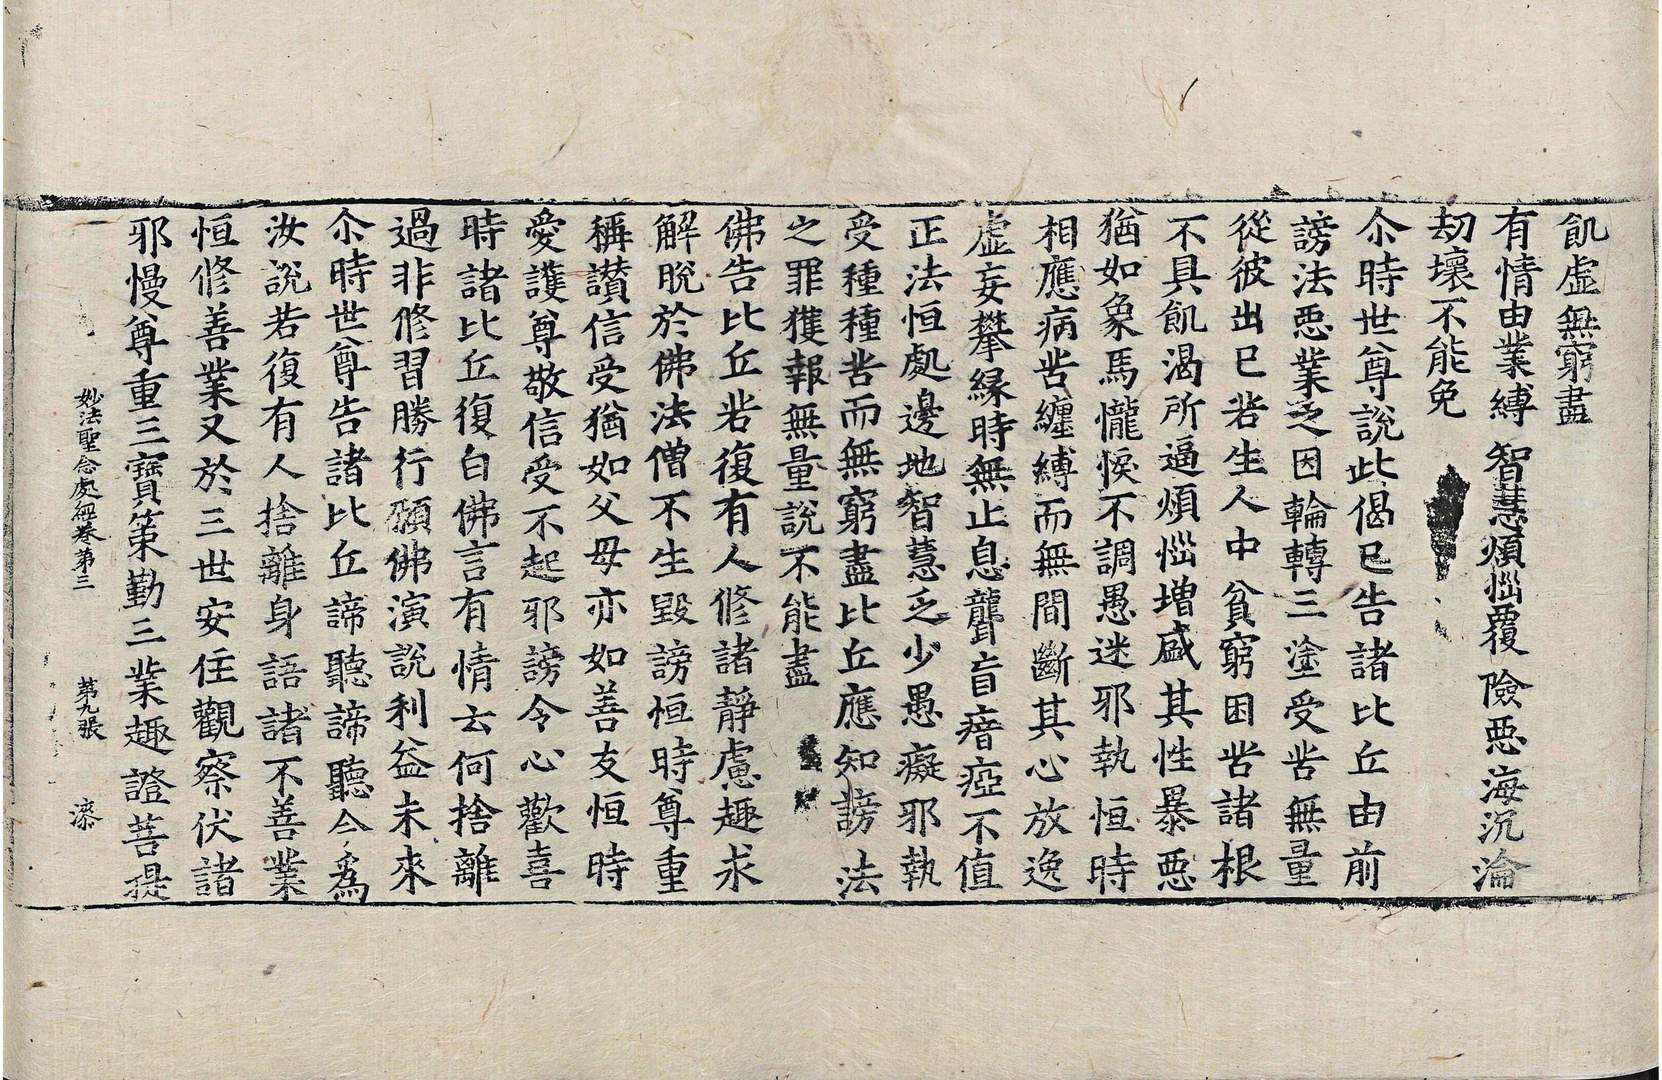 飢虛無窮盡
有情由業縛 智慧煩惱覆 險惡海沉淪
劫壞不能免
尒時世尊說此偈已告諸比丘由前
謗法惡業之因輪轉三塗受苦無量
從彼出已若生人中貧窮困苦諸根
不具飢渴所逼煩惱增盛其性暴惡
猶如象馬㦬悷不調愚迷邪執恒時
相應病苦纏縛而無間斷其心放逸
虛妄攀緣時無止息聾盲瘖瘂不值
正法恒處邊地智慧乏少愚癡邪執
受種種苦而無窮盡比丘應知謗法
之罪獲報無量說不能盡
佛告比丘若復有人修諸靜慮趣求
解脫於佛法僧不生毀謗恒時尊重
稱讚信受猶如父母亦如善友恒時
愛護尊敬信受不起邪謗令心歡喜
時諸比丘復白佛言有情云何捨離
過非修習勝行願佛演說利益未來
尒時世尊告諸比丘諦聽諦聽今為
汝說若復有人捨離身語諸不善業
恒修善業又於三世安住觀察伏諸
邪慢尊重三寶策勤三業趣證菩提
妙法聖念處經卷第三 第九張 漆